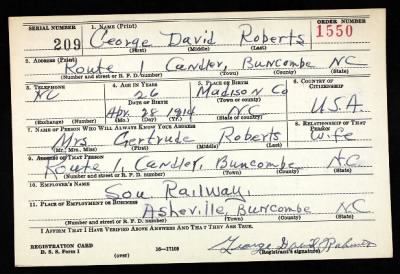 SERIAL NUMBER 1. NAME (Print) ORDER NUMBER
209 George David Roberts 1550
(First) (Middle) (Last)
2. ADDRESS (Print)
Route 1 Candler, Buncombe NC
(Number and street or R. F. D. number) (Town) (County) (State)
3. TELEPHONE 4. AGE IN YEARS 5. PLACE OF BIRTH 6. COUNTRY OF CITIZENSHIP
NO 26 Madison Co
DATE OF BIRTH (Town or county)
Apr. 28 1914 NC U.S.A.
(Exchange) (Number) (Mo.) (Day) (Yr.) (State or country)
7. NAME OF PERSON WHO WILL ALWAYS KNOW YOUR ADDRESS 8. RELATIONSHIP OF THAT PERSON
Mrs Gertrude Roberts Wife
(Mr., Mrs., Miss) (First) (Middle) (Last)
9. ADDRESS OF THAT PERSON
Route 1 Candler, Buncombe NC
(Number and street or R. F. D. number) (Town) (County) (State)
10. EMPLOYER'S NAME
Sou Railway,
11. PLACE OF EMPLOYMENT OR BUSINESS
Asheville, Buncombe NC
(Number and street or R. F. D. number) (Town) (County) (State)
I AFFIRM THAT I HAVE VERIFIED ABOVE ANSWERS AND THAT THEY ARE TRUE.
REGISTRATION CARD George David
D. S. S. Form 1 (over) 16—17105 (Registrant's signature)